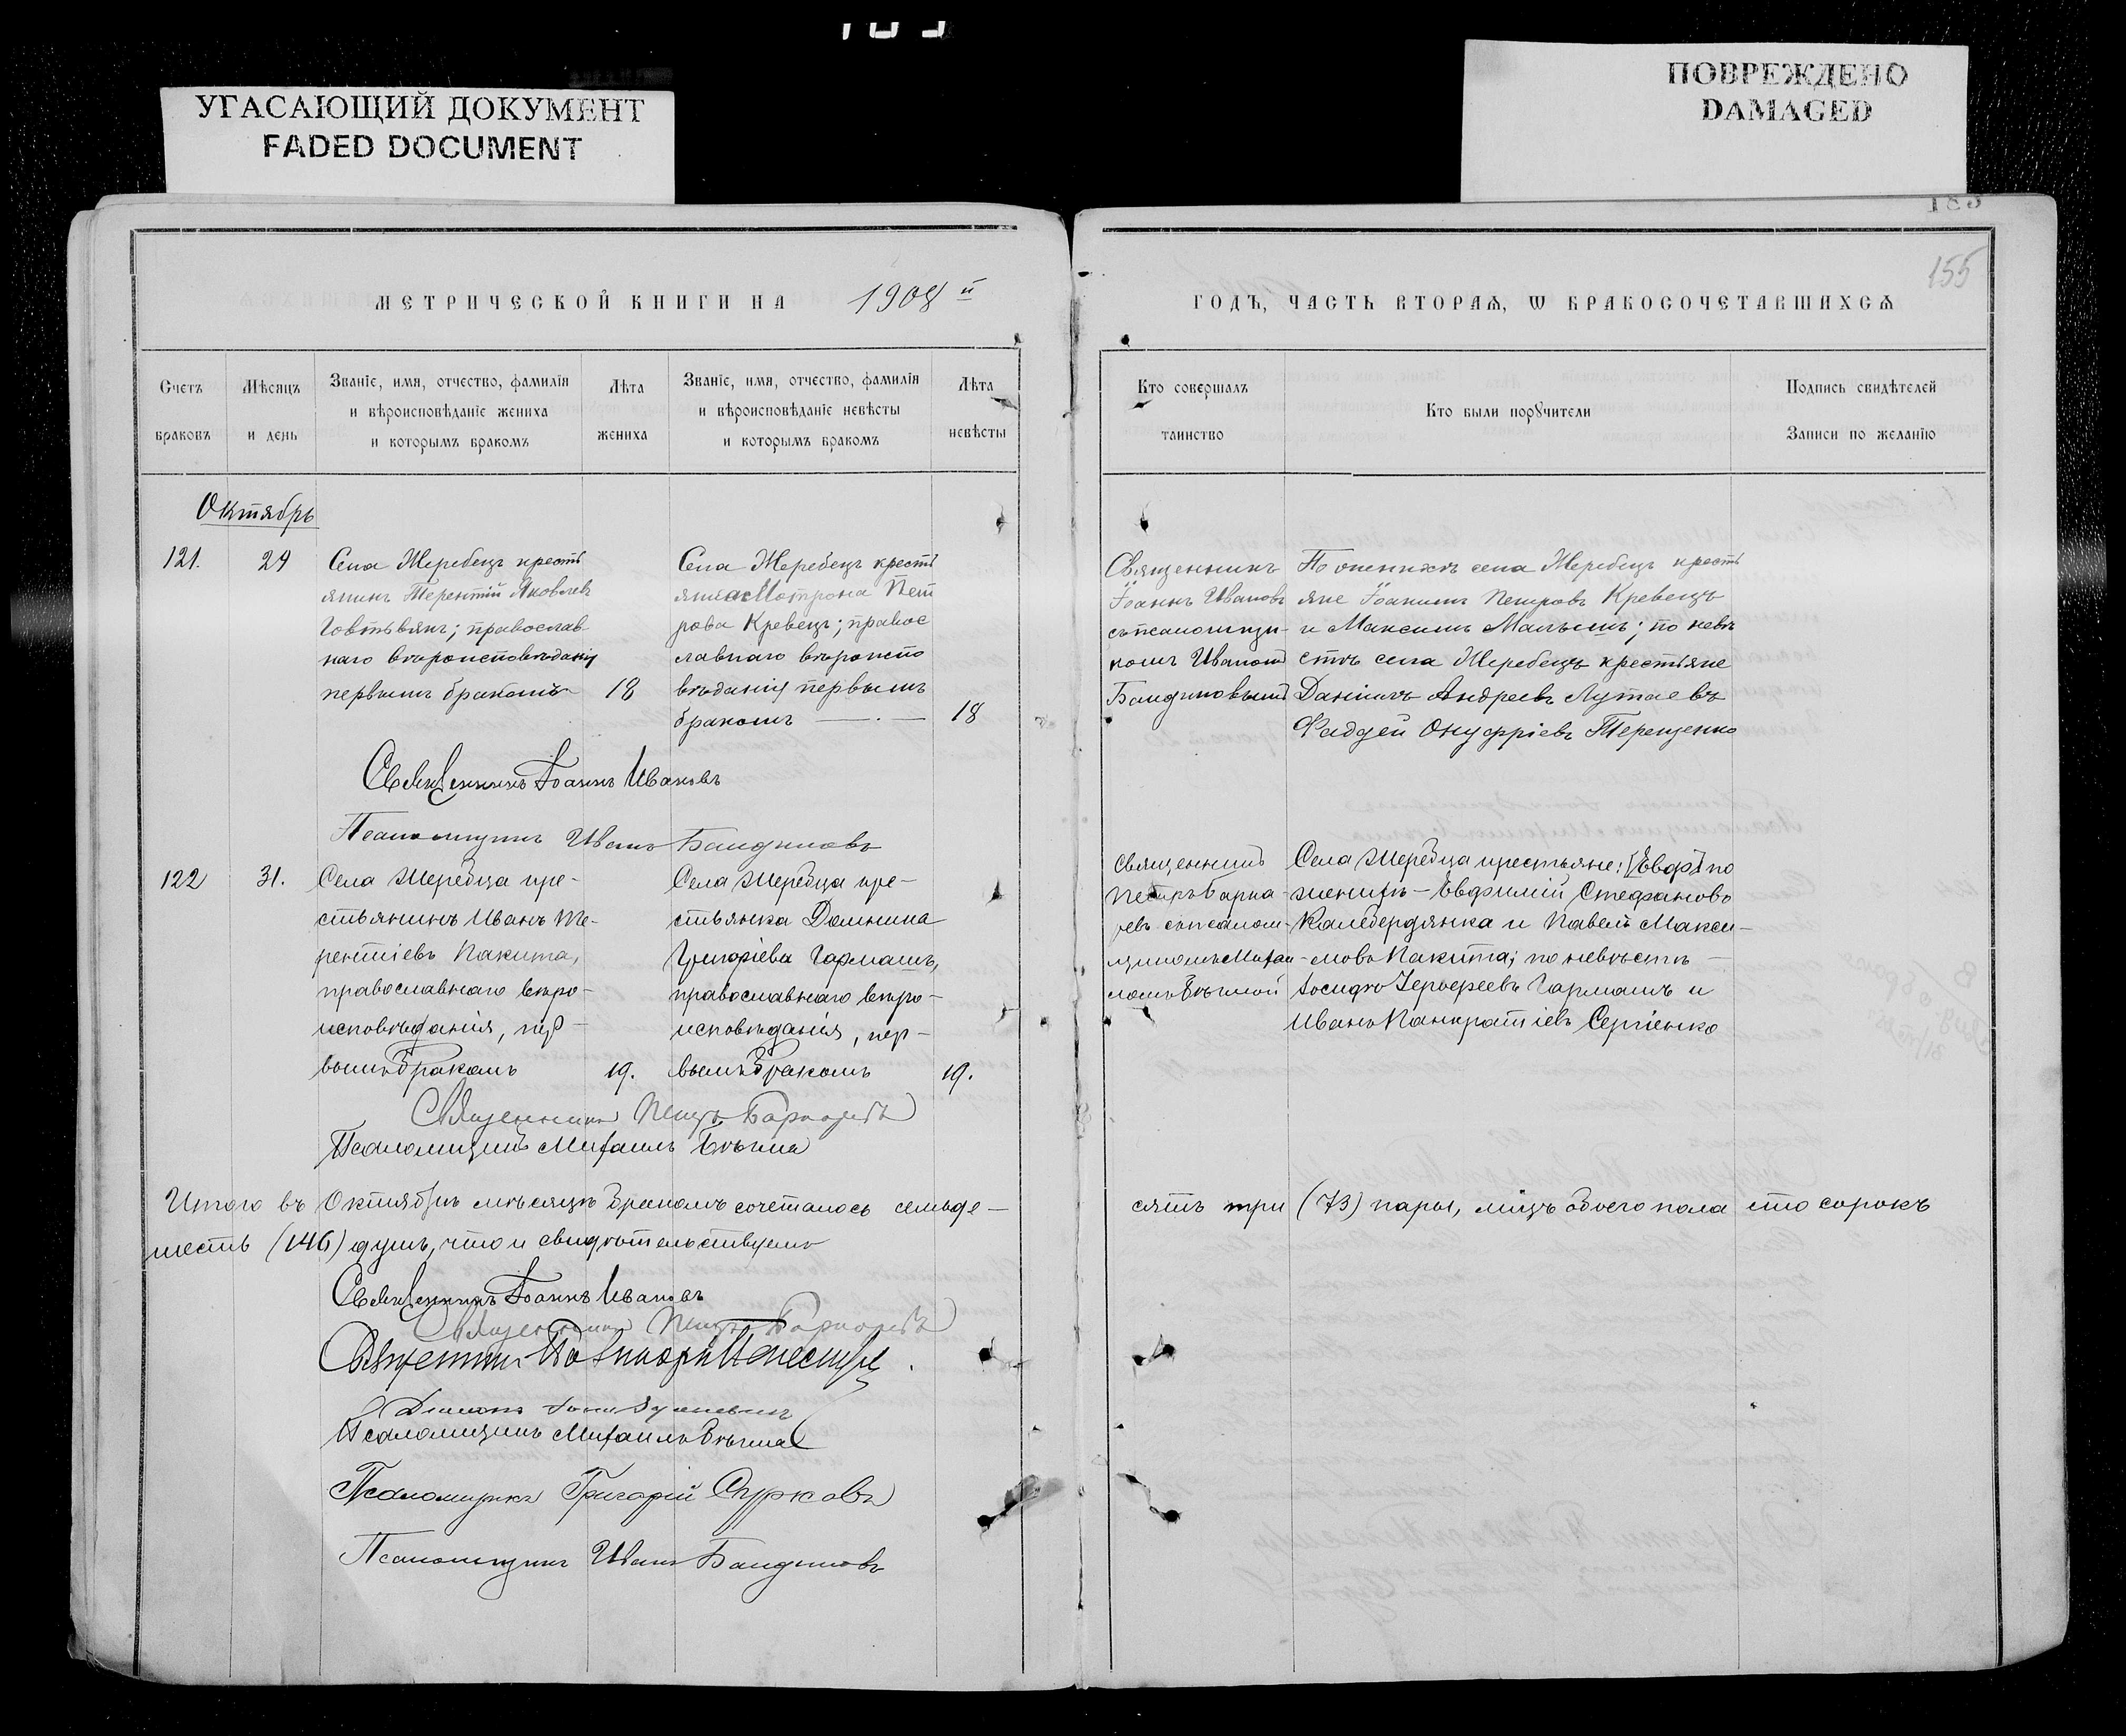 УГАСАЮЩИЙ ДОКУМЕНТ
FADED DOCUMENT
ПОВРЕЖДЕНО
DAMAGED
155
МЕТРИЧЕСКОЙ КНИГИ НА 1908 й
ГОДЪ, ЧАСТЬ ВТОРАѦ, Ѡ БРАКОСОЧЕТАВШИХСѦ
Счетъ браковъ
Мѣсяцъ и день
Званіе, имя, отчество, фамилія
и вѣроисповѣданіе жениха
и которымъ бракомъ
Лѣта жениха
Званіе, имя, отчество, фамилія
и вѣроисповѣданіе невѣсты
и которымъ бракомъ
Лѣта невѣсты
Кто совершалъ таинство
Кто были порꙋчители
Подпись свидѣтелей
Записи по желанію
Октябрь
121. 29
Села Жеребецъ кресть
янинъ Терентій Яковлевъ
православ
наго вѣроисповѣданія
первымъ бракомъ 18
Села Жеребецъ кресть
янка Мотрона Пет
рова Кревецъ; правос
лавнаго вѣроиспо
вѣданія первымъ
бракомъ 18
Священникъ
Іоаннъ Ивановъ
съ псаломщи-
комъ Иваномъ
Бандиновымъ
По женихѣ села Жеребецъ кресть
яне Іоакимъ Петровъ Кревецъ
и Максимъ Малышъ; по невѣ
стѣ села Жеребецъ крестьяне
Даніилъ Андреевъ Лутаевъ
Фаддей Онуфріевъ Терещенко
Священникъ Іоаннъ Ивановъ
Псаломщикъ Иванъ Бандиновъ
122 31.
Села Жеребца кре-
стьянинъ Иванъ Те-
рентіевъ Пакита,
православнаго вѣро-
исповѣданія, пер-
вымъ бракомъ 19.
Села Жеребца кре-
стьянка Домнина
Григоріева Гармашъ,
православнаго вѣро-
исповѣданія, пер-
вымъ бракомъ 19.
Священникъ
Петръ
съ псалом-
щикомъ Михаи-
ломъ
Села Жеребца крестьяне: [Евф] по
женихѣ - Евфимій Стефановъ
Калебердянка и Павелъ Макси-
мовъ Пакита; по невѣстѣ -
Іосифъ Гармашъ и
Иванъ Панкратіевъ Сергіенко
Священникъ Петръ
Псаломщикъ Михаилъ
Итого въ Октябрѣ мѣсяцѣ бракомъ сочеталось семьде-
сятъ три (73) пары, лицъ обоего пола сто сорокъ
шесть (146) душъ, что и свидѣтельствуемъ
Священникъ Іоаннъ Ивановъ
Священникъ Петръ
Священникъ
Діаконъ
Псаломщикъ Михаилъ
Псаломщикъ Григорій Сурковъ
Псаломщикъ Иванъ Бандиновъ